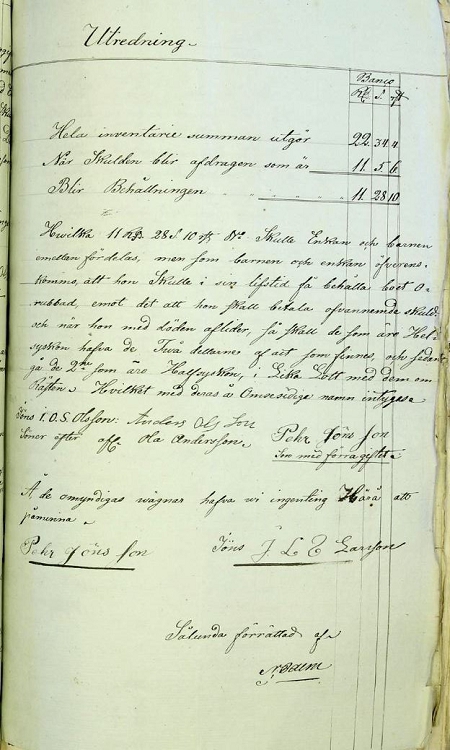 Utredning
Banco
Rd. s. rst
Hela inventarie summan utgör 22. 34. 4
När Skulden blir afdragen som är 11. 5. 6
Blir Behållningen 11. 28. 10
Hwilka 11 Rd. 28 s. 10 rst Bco Skulle Enkan och barnen
emellan fördelas, men som barnen och enkan öfverens-
kommo, att hon Skulle i sin lifstid få behålla boet o-
rubbad, emot det att hon skall betala ofvannemde skuld
och när hon med Döden aflider, så skall de som äro Hel-
syskon hafva de Två delarne af alt som finnes, och sedan
gå de som äro Halfsyskon, i Lika Lott med dem om
Hvilket med deras Omvexlige namn intygas
Jöns O. S. Olsson: Anders Ols Son
Söner efter aff. Ola Andersson
Pehr Jöns son
Son med förra giftet
Å de omyndigas wägnar hafva vi ingenting Härå att
påminna
Pehr Jöns son Jöns J L E Larsson
Sålunda förrättad af